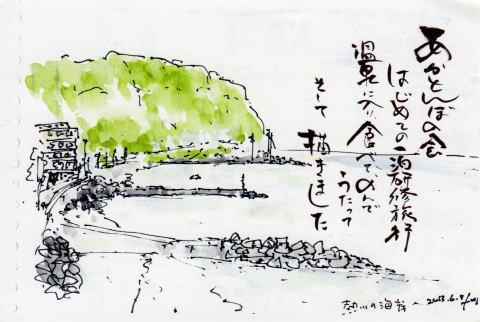 あかとんぼの会
はじめての一泊研修旅行
温泉に入り、食べてのんで
うたって
そして 描きました
熱川の海岸